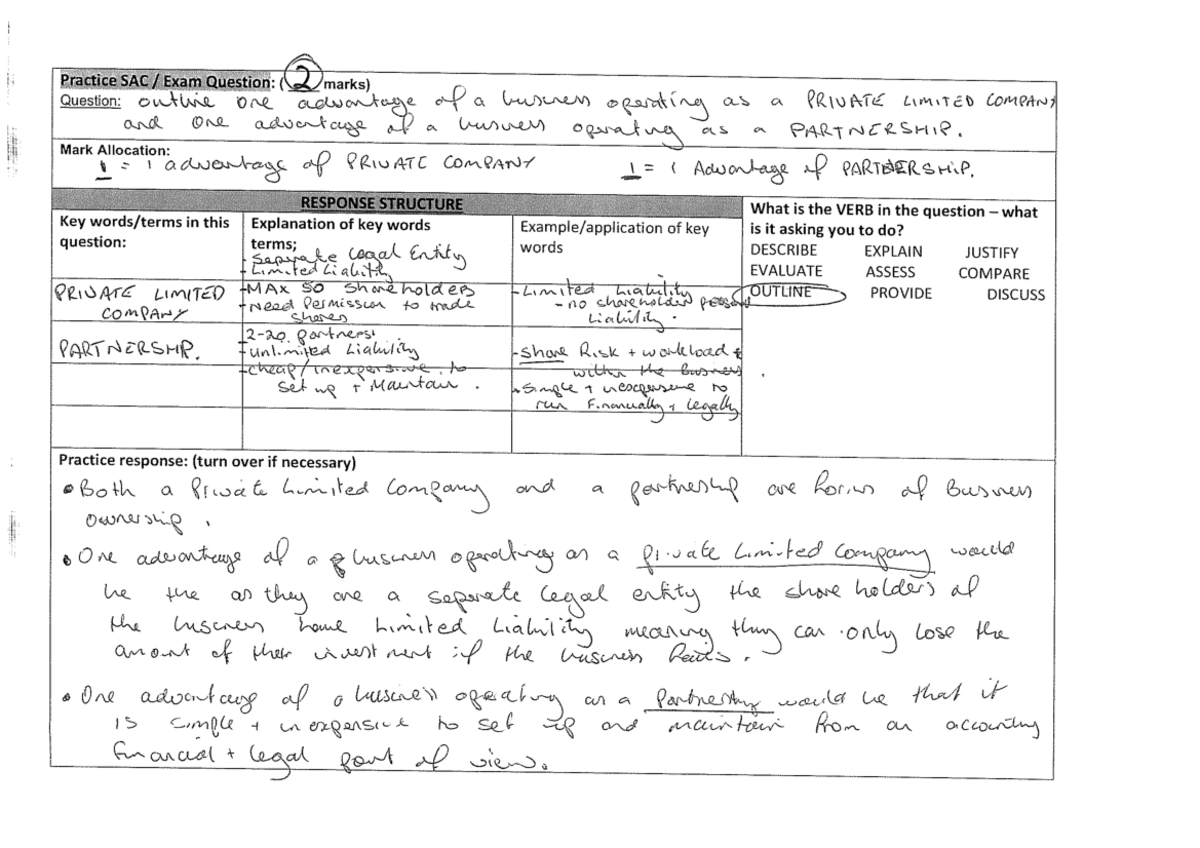 Practice SAC / Exam Question: (2 marks)
Question: outline one advantage of a business operating as a PRIVATE LIMITED COMPANY
and one advantage of a business operating as a PARTNERSHIP.
Mark Allocation:
1 = 1 advantage of PRIVATE COMPANY 1 = 1 Advantage of PARTNERSHIP.
RESPONSE STRUCTURE
Key words/terms in this
question:
Explanation of key words
terms;
- Separate Legal Entity
- Limited Liability
Example/application of key
words
What is the VERB in the question – what
is it asking you to do?
DESCRIBE EXPLAIN JUSTIFY
EVALUATE ASSESS COMPARE
OUTLINE PROVIDE DISCUSS
PRIVATE LIMITED
COMPANY
- MAX 50 Shareholders
- Need Permission to trade
shares
- Limited Liability
- no shareholder personal
Liability.
PARTNERSHIP.
2-20 partners
- unlimited Liability
- cheap/inexpensive to
set up + Maintain.
- share Risk + workload
within the Business
- Simple + inexpensive to
run Financially + legally
Practice response: (turn over if necessary)
• Both a Private Limited Company and a partnership are forms of Business
Ownership.
• One advantage of a business operating as a private Limited Company would
be the as they are a separate legal entity the shareholders of
the business have Limited Liability meaning they can only lose the
amount of their investment if the business fails.
• One advantage of a business operating as a Partnership would be that it
is simple + inexpensive to set up and maintain from an accounting
financial + legal point of view.